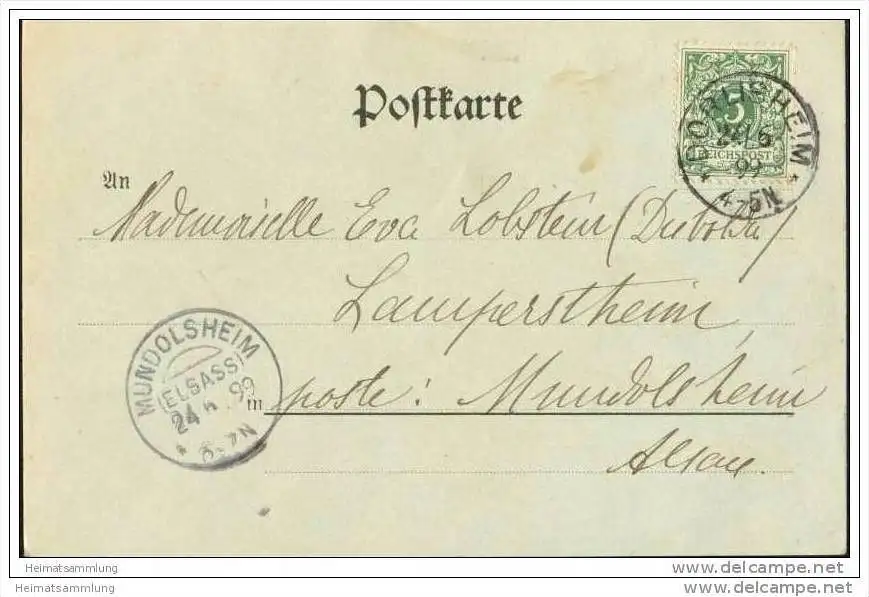 Postkarte
5
REICHSPOST
DORLISHEIM
24.6
99
4-5N
An
Mademoiselle Eva Lobstein (Diebolds)
Lampertheim,
MUNDOLSHEIM
(ELSASS)
24 6 99
in poste: Mundolsheim
Alsace.
Heimatsammlung
www.delcampe.net
Heimatsammlung
www.delcampe.net